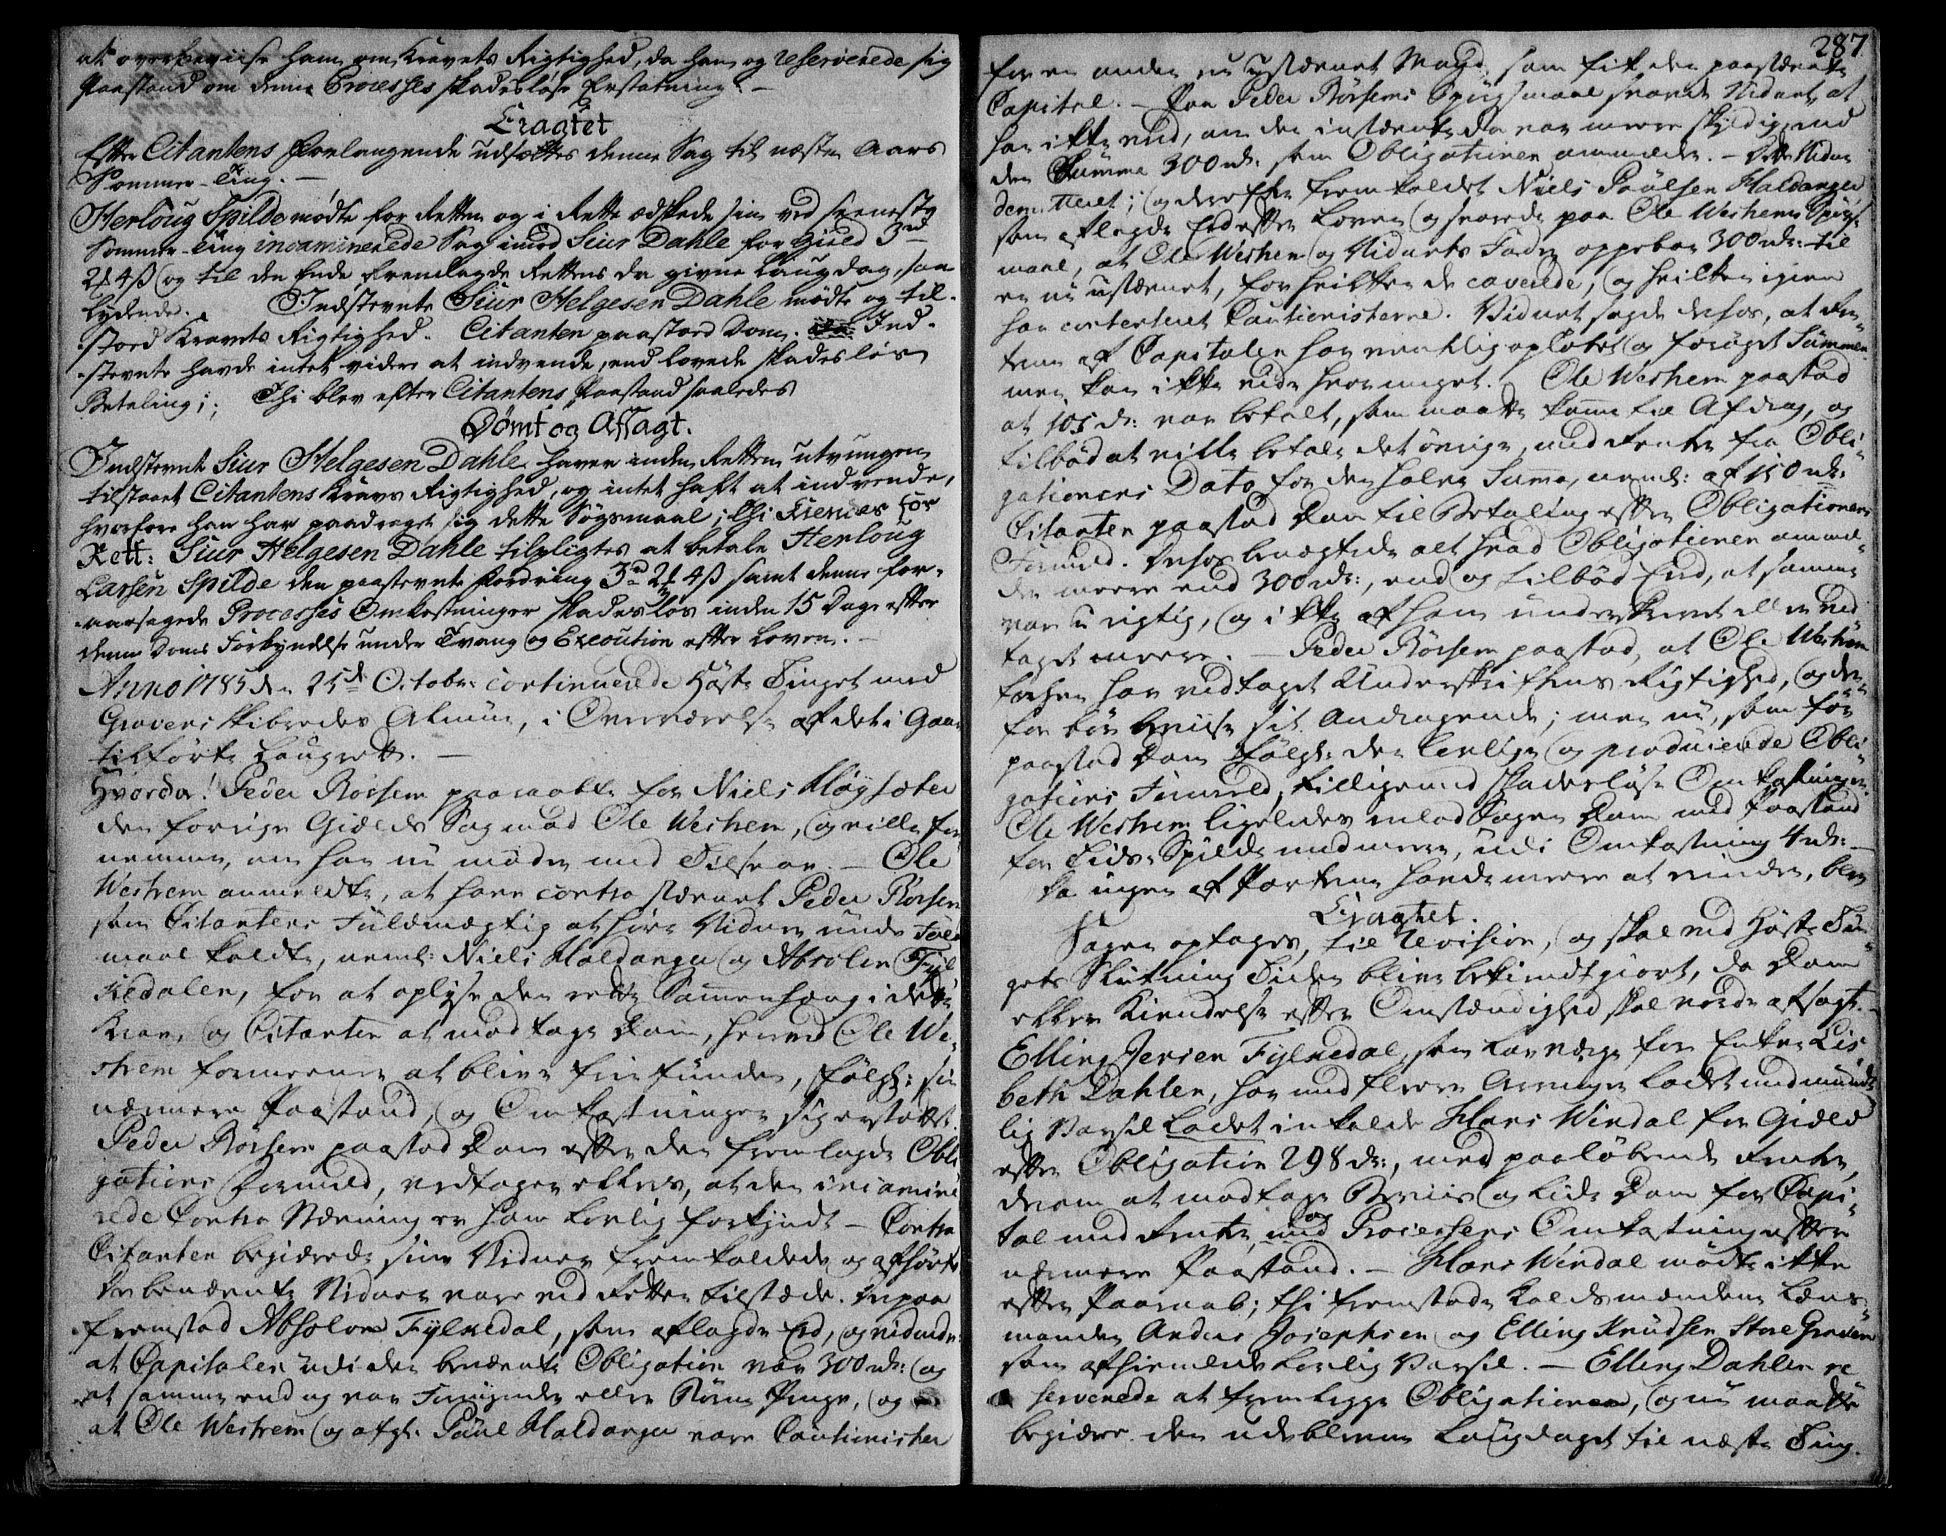 at overbeviise ham om Kravets Rigtighed, da han og reserverede sig
Paastand om denne Processes skadesløse Erstatning. —
Eragtet
Efter Citantens Forlangende udsættes denne Sag til næste Aars
Sommer-Ting. —
Herloug Spilde mødte for Retten og i Rette ædskede sin ved seeneste
Sommer-Ting incaminerede Sag imod Siur Dahle for Gield 3rd
2 4ß og til den Ende fremlagde Rettens da givne Laugdag, saa
lydende. Indstevnte Siur Helgesen Dahle mødte og til-
stoed Kravets Rigtighed. Citanten paastoed Dom. Ind-
stevnte havde intet videre at indvende, end lovede skadesløs
Betaling; Thi blev efter Citantens Paastand saaledes
Dømt og Afsagt.
Indstevnte Siur Helgesen Dahle haver inden Retten utvungen
tilstaaet Citantens Kravs Rigtighed, og intet haft at indvende,
hvorfore han har paadraget sig dette Søgsmaal; Thi Kiendes for
Rett: Siur Helgesen Dahle tilpligtes at betale Herloug
Larsen Spilde den paastevnte Fordring 3rd 2 4ß samt denne for-
aarsagede Processes Omkostninger skadesløs inden 15 Dage efter
denne Doms Forkyndelse under Tvang og Execution efter Loven. —
Anno 1785 den 25de Octobr: continuerede Høste Tinget med
Gravens Skibredes Almue, i Overværelse af det i Gaar
tilførte Laugrett. —
Hvorda! Peder Børsem paaraabte for Niels Høysæter
den forrige Gields Sag mod Ole Westrem, og ville for-
nemme, om han nu møder med Tilsvar. — Ole
Westrem anmeldte, at have contra stævnet Peder Børsem
som Citantens Fuldmægtig at høre Vidner under Fals-
maal kaldte, neml: Niels Haldanger og Absolon Fyl-
kedalen, for at oplyse den rette Sammenhæng i dette
Krav, og Citanten at modtage Dom, hvorved Ole We-
strem formeener at blive frifunden, følgl: sin
nærmere Paastand, og Omkostninger sig erstattet.
Peder Børsem paastod Dom efter den fremlagde Obli-
gations Formeld, vedtager ellers, at den incamine-
rede Contra Stævning er ham lovlig forkyndt — Contra
Citanten begiærede sine Vidner fremkaldede og afhørte
De benævnte Vidner vare ved Retten tilstæde. Derpaa
fremstod Absolon Fylkedal, som aflagde Eed, og vidnede:
at Capitalen udi den benævnte Obligation var 300 rdr: og
at samme end og var Penge, og
at Ole Westrem og afg: Paul Haldanger vare Cautionister
287
for en anden nu ustævnet Mand, som fik den paastævnte
Capital. — Paa Peder Børsems Spørgsmaal svarede Vidnet, at
han ikke veed, om den indstævnte da var meere skyldig, end
den Summa 300 rdr: som Obligationen ommelder. — Dette Vidne
demitteret; og derefter fremkaldet Niels Poulsen Haldanger
som aflagde Eed efter Loven og svarede paa Ole Westrems Spørgs-
maal, at Ole Westrem og Vidnets Fader oppebar 300 rdr: til
en nu ustævnet, for hvilken de caverede, og hvilken igien
har contenteret Cautionisterne. Vidnet sagde desfor, at Ren-
ten af Capitalen har nemlig opløbet og forøget Summen
men kan ikke vide hvor meget. Ole Westrem paastod
at 105 dr: var betalt, som maatte komme til Afdrag, og
tilbød at ville betale det øvrige, med Rente fra Obli-
gationens Dato for den halve Summa, neml: af 150 rdr:
Citanten paastod Dom til Betaling efter Obligationens
Formeld. benægtede alt hvad Obligationen ommel-
der meere end 300 rdr:, end og tilbød Eed, at samme
var urigtig, og ikke af ham underskrevet eller ved
taget meere. — Peder Børsem paastod, at Ole Westrem
forhen har vedtaget Underskriftens Rigtighed, og der-
for bør beviise sit Andragende; men nu, som før
paastod Dom følgl: den lovlige og producerede Obli-
gations Formeld, tilligemed skadesløse Omkostninger.
Ole Westrem ligeledes indlod Sagen Dom med Paastand
for Tids-Spilde med meere, udi Omkostning 4 rdr:
Da ingen af Parterne havde meere at erindre, blev
Eragtet.
Sagen optages, til Revision, og skal ved Høste Tin-
gets Slutning Tiden blive bekiendtgiort, da Dom
eller Kiendelse efter Omstændighed skal vorde afsagt. —
Elling Jensen Fylkedal, som Laugværge for Enken Lis-
beth Dahlen, har med fleere ladet med mundt-
lig Varsel ladet indkalde Hans Windal for Gield
efter Obligation 298 dr:, med paaløbende Renter,
derom at modtage Beviis og lide Dom for Capi-
tal med Renter, og Processens Omkostning efter
nærmere Paastand. — Hans Windal mødte ikke
efter Paaraab; thi fremstode Kaldsmændene Læns-
manden Anders Josephsen og Elling Knudsen Store Graven
som afhiemlede lovlig Varsel. — Elling Dahlen re-
serverede at fremlegge Obligationen, og nu maatte
begiære den udeblevne Laugdaget til næste Ting.